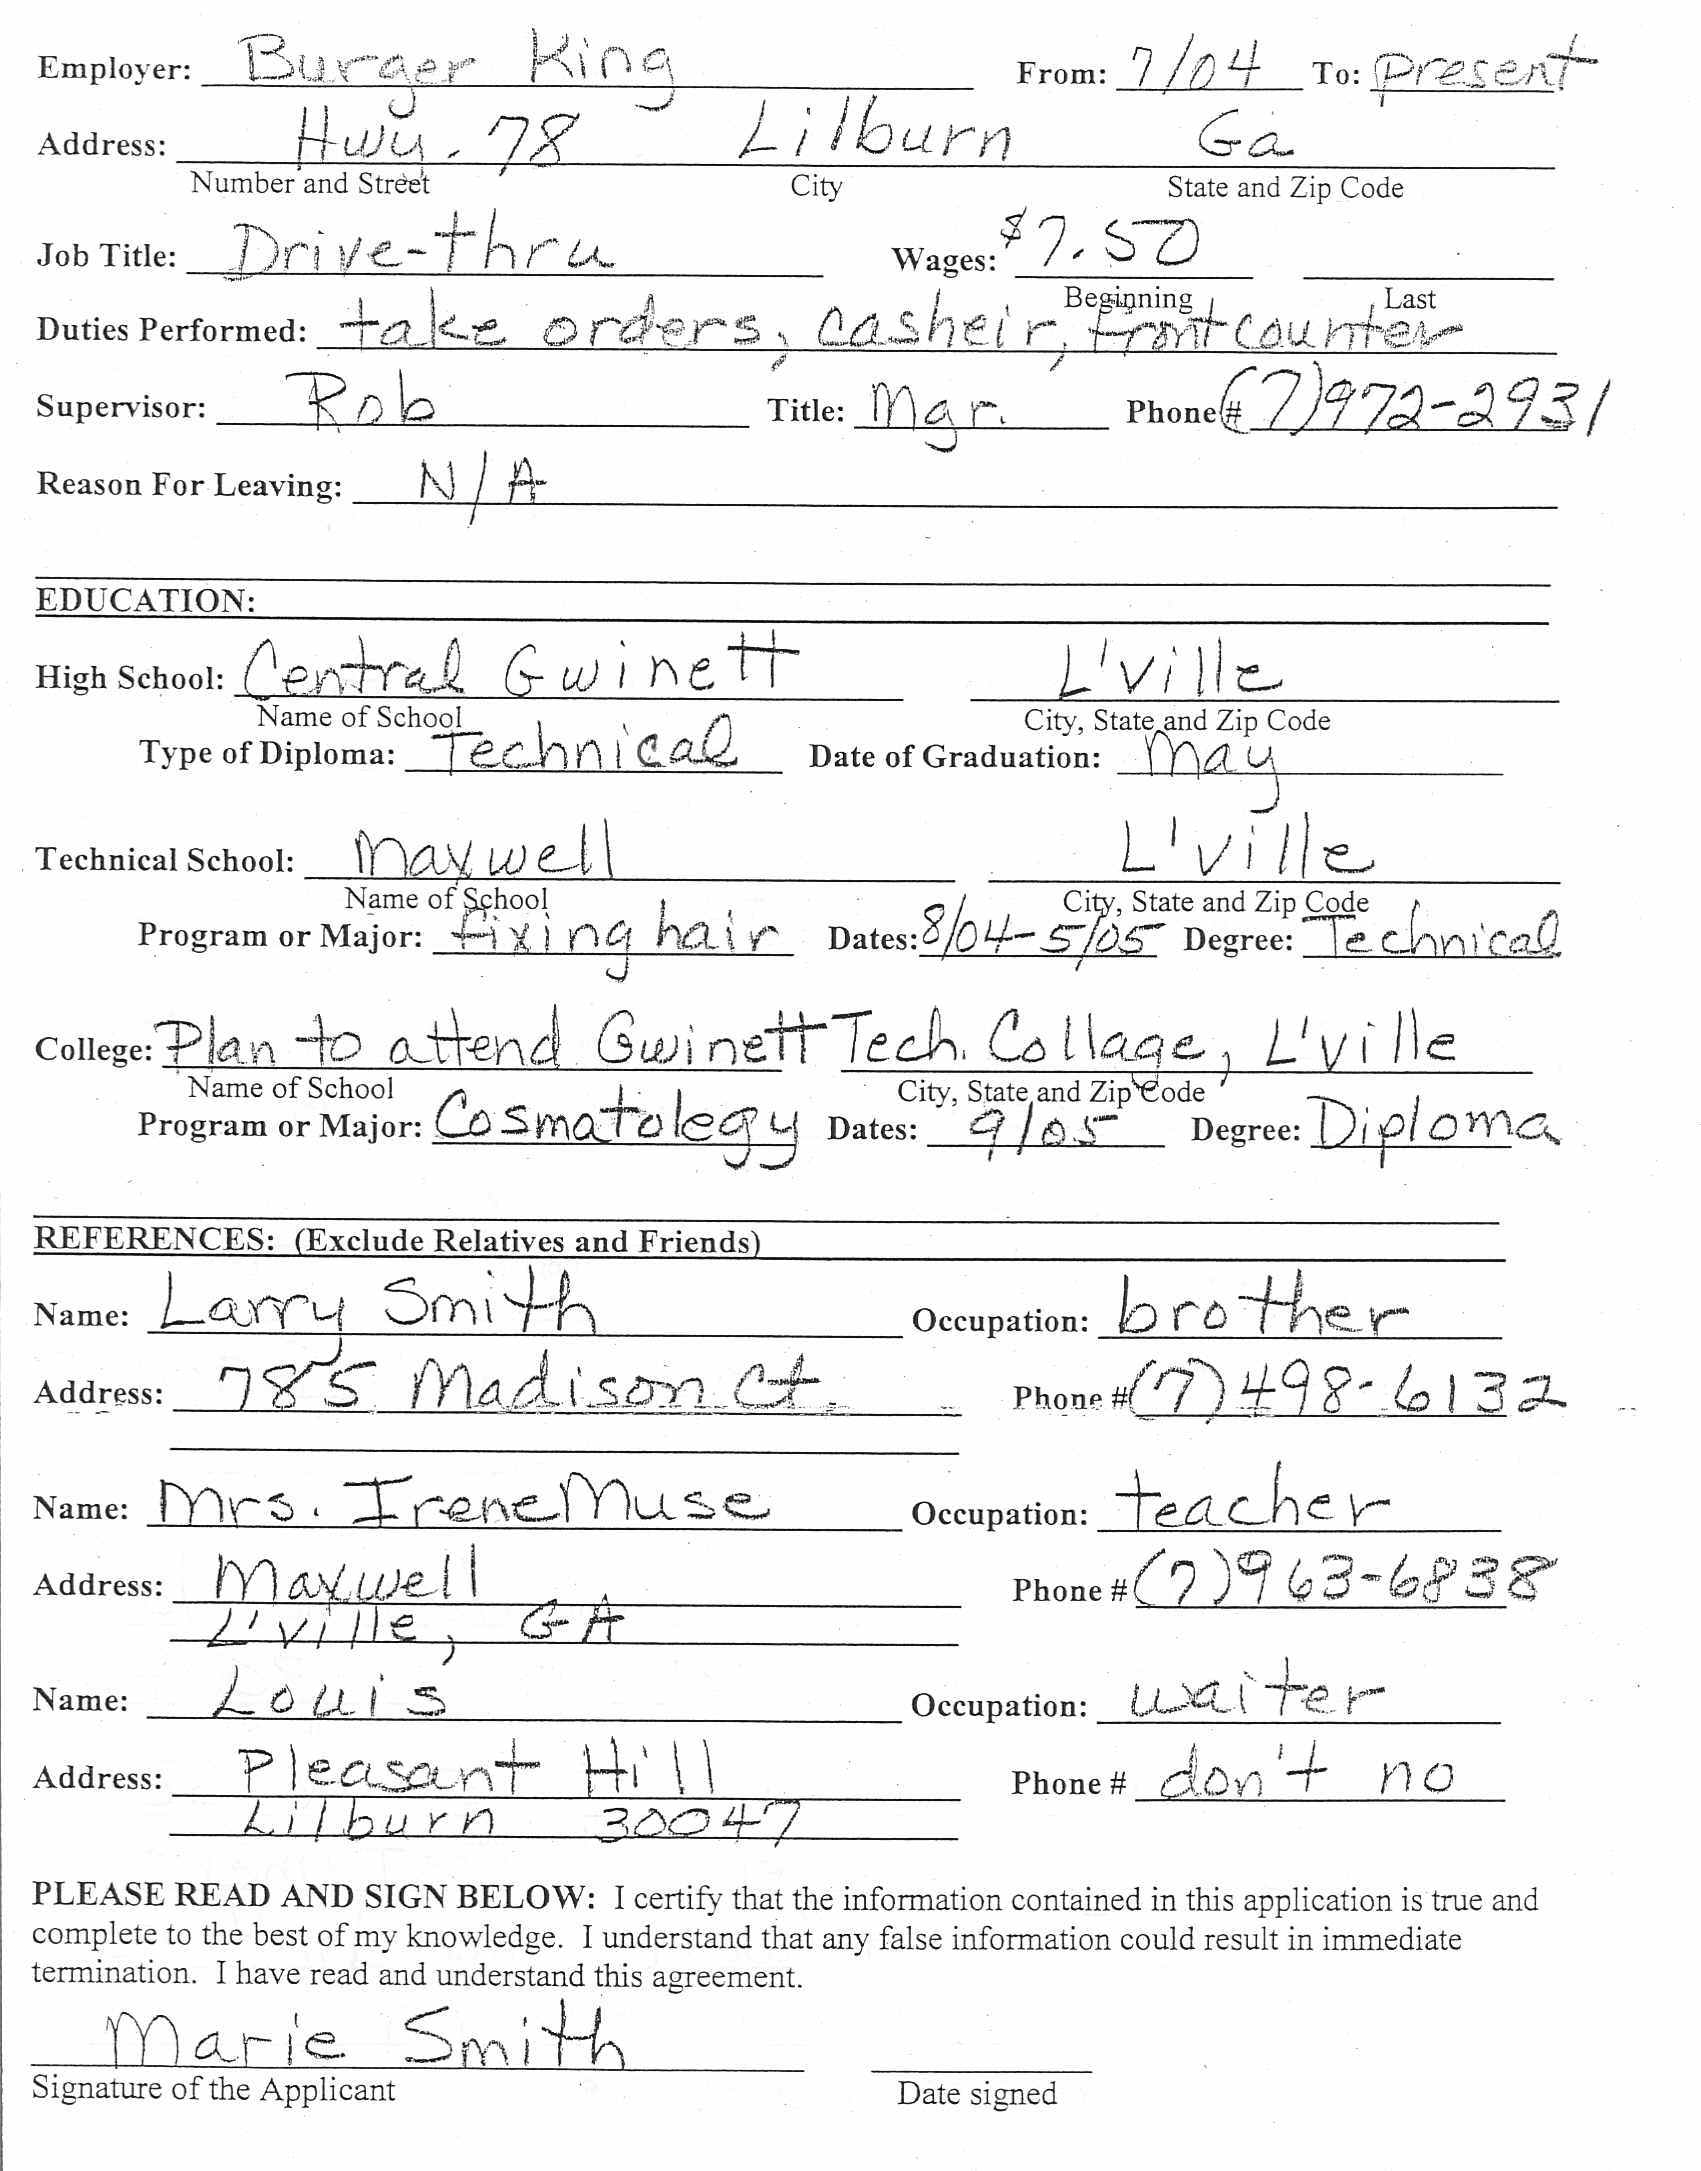 Employer: Burger King From: 7/04 To: present
Address: Hwy. 78 Lilburn Ga
Number and Street City State and Zip Code
Job Title: Drive-thru Wages: $7.50
Beginning Last
Duties Performed: take orders, casheir, front counter
Supervisor: Rob Title: Mgr. Phone # (7)972-2931
Reason For Leaving: N/A
EDUCATION:
High School: Central Gwinett L'ville
Name of School City, State and Zip Code
Type of Diploma: Technical Date of Graduation: May
Technical School: Maxwell L'ville
Name of School City, State and Zip Code
Program or Major: fixing hair Dates: 8/04-5/05 Degree: Technical
College: Plan to attend Gwinett Tech. Collage, L'ville
Name of School City, State and Zip Code
Program or Major: Cosmatolegy Dates: 9/05 Degree: Diploma
REFERENCES: (Exclude Relatives and Friends)
Name: Larry Smith Occupation: brother
Address: 785 Madison Ct. Phone # (7) 498-6132
Name: Mrs. Irene Muse Occupation: teacher
Address: Maxwell Phone # (7)963-6838
L'ville, GA
Name: Louis Occupation: waiter
Address: Pleasant Hill Phone # don't no
Lilburn 30047
PLEASE READ AND SIGN BELOW: I certify that the information contained in this application is true and
complete to the best of my knowledge. I understand that any false information could result in immediate
termination. I have read and understand this agreement.
Marie Smith
Signature of the Applicant Date signed